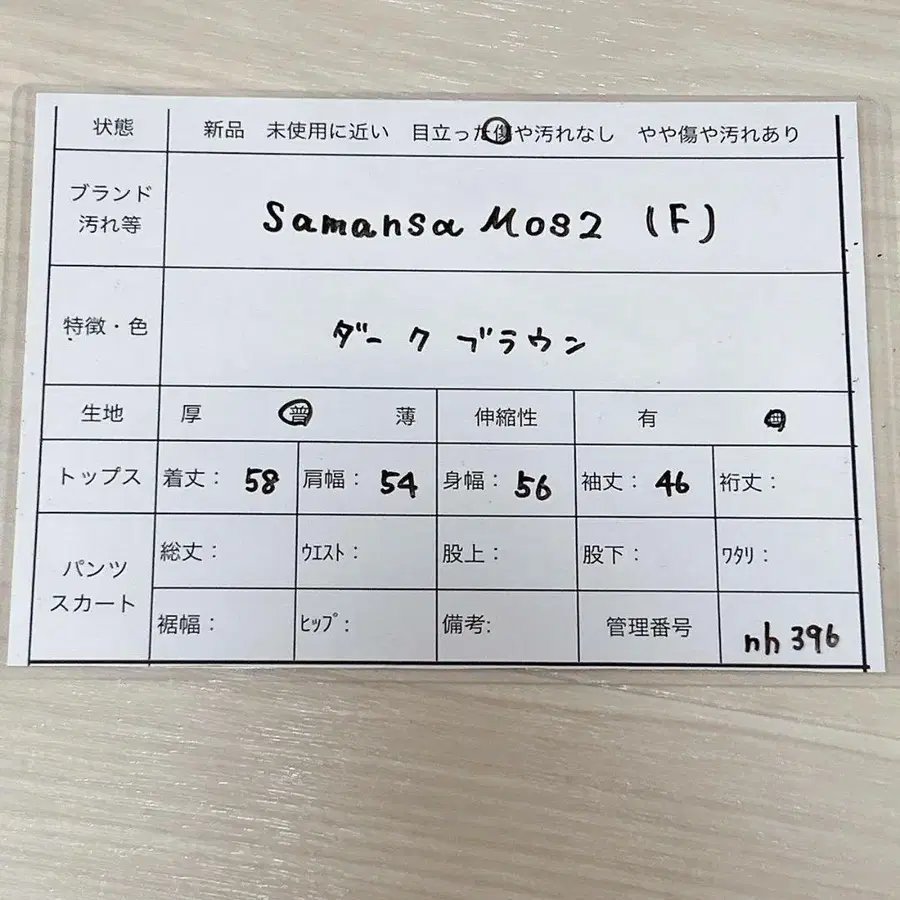 状態 新品 未使用に近い 目立った傷や汚れなし やや傷や汚れあり
ブランド
汚れ等
Samansa Mos2 (F)
特徴・色 ダークブラウン
生地 厚 普 薄 伸縮性 有 無
トップス 着丈: 58 肩幅: 54 身幅: 56 袖丈: 46 裄丈:
パンツ
スカート
総丈: ウエスト: 股上: 股下: ワタリ:
裾幅: ヒップ: 備考: 管理番号 nh 396